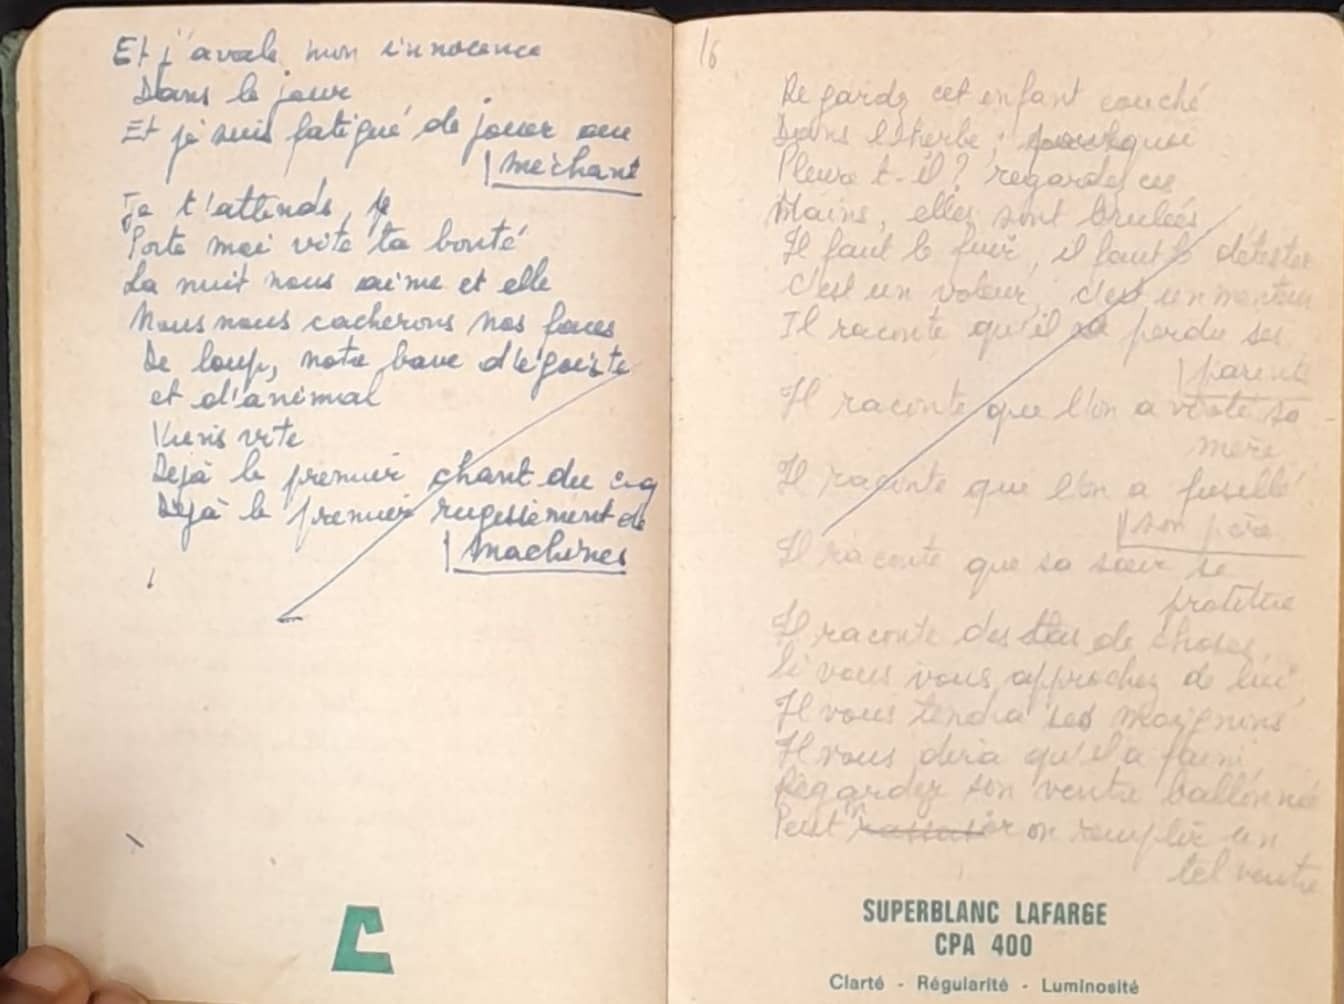 Et j'avale mon innocence
Dans le jour
Et je suis fatigué de jouer au
méchant
Je t'attends,
Porte moi vite ta bonté
La nuit nous aime et elle
Nous nous cacherons nos faces
De loup, notre bave d'égoiste
et d'animal
Viens vite
Dejà le premier chant du coq
Dejà le premier rugissement de
machines
16
Regardez cet enfant couché
Dans l'herbe, pourquoi
Pleure t-il? regardez ces
Mains, elles sont brulées
Il faut le fuir, il faut le détester
C'est un voleur, c'est un menteur
Il raconte qu'il a perdu ses
parents
Il raconte que l'on a violé sa
mère
Il raconte que l'on a fusillé
son père
Il raconte que sa sœur se
prostitue
Il raconte des tas de choses
Si vous vous approchez de lui
Il vous tendra ses moignons
Il vous dira qu'il a faim
Regardez son ventre ballonné
Peut on remplir un
tel ventre
C
SUPERBLANC LAFARGE
CPA 400
Clarté - Régularité - Luminosité